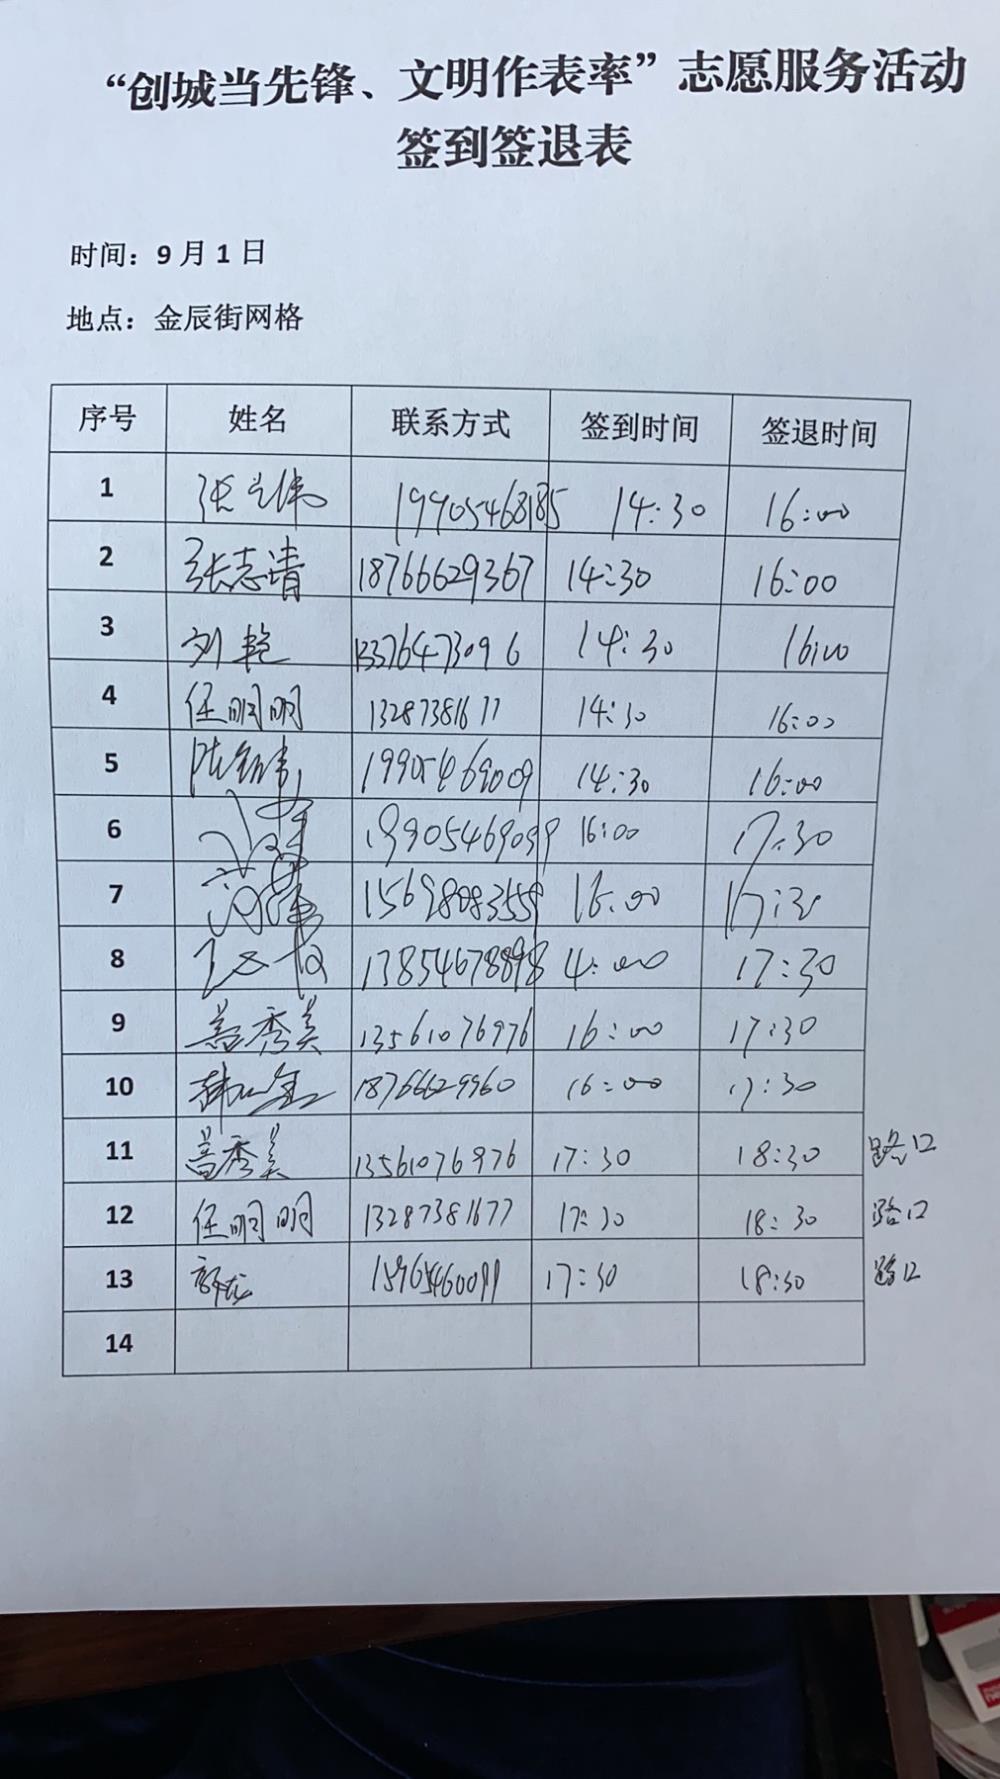 “创城当先锋、文明作表率”志愿服务活动
签到签退表
时间：9月1日
地点：金辰街网格
序号 姓名 联系方式 签到时间 签退时间
1 19905468185 14:30 16:00
2 张志清 18766629367 14:30 16:00
3 刘艳 13376473096 14:30 16:00
4 任明明 13287381677 14:30 16:00
5 19905469009 14:30 16:00
6 19905469099 16:00 17:30
7 15698083558 16:00 17:30
8 13854678898 4:00 17:30
9 盖秀美 13561076976 16:00 17:30
10 18766629960 16:00 17:30
11 盖秀美 13561076976 17:30 18:30 路口
12 任明明 13287381677 17:30 18:30 路口
13 15965460099 17:30 18:30 路口
14